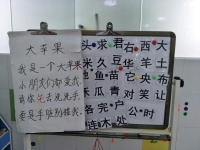 大苹果
我是一个大苹果
小朋友们都爱我
请你先去洗洗手
要是手脏别碰我
头求君右西大
米久豆华羊土
地鱼苗它央布
朱瓜青对笑让
各完户公时
连木处